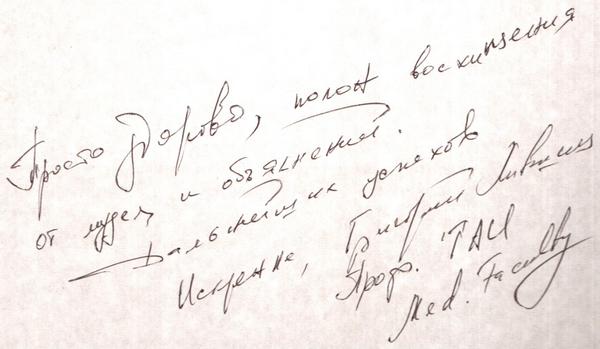 Просто здорово, полон восхищения
от музея и объяснений.
Дальнейших успехов
Искренне, Григорий Лившиц
Проф. ТАУ
Med. Faculty